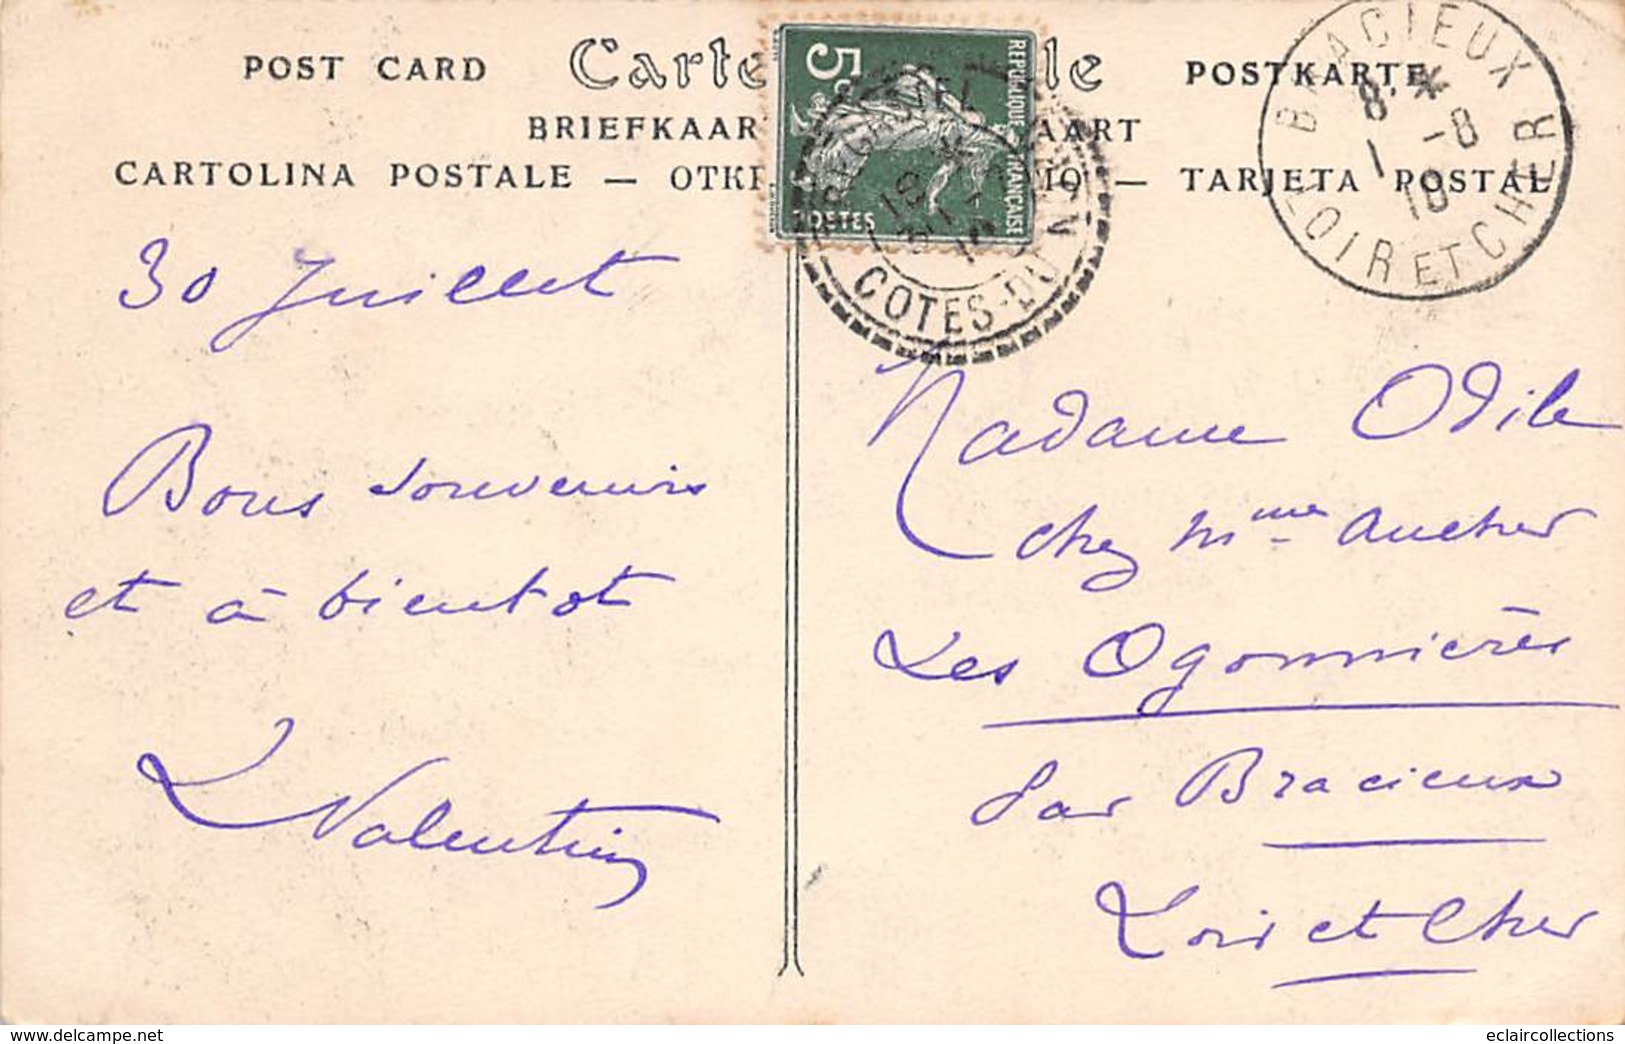 POST CARD Carte le POSTKARTE
BRIEFKAAR AART
CARTOLINA POSTALE — ОТКР МО — TARJETA POSTAL
5c
REPUBLIQUE FRANÇAISE
POSTES
COTES-DU-NORD
BRACIEUX
8* 1 -8 10
LOIR ET CHER
30 Juillet
Bons souvenirs
et à bientot
L Valentin
Madame Odile
chez Mme Aucher
Les Ogonnières
Par Bracieux
Loir et Cher
www.delcampe.net
eclaircollections